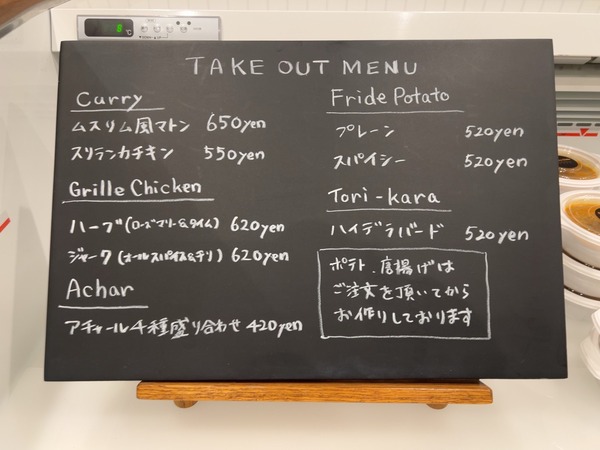 TAKE OUT MENU
Curry
ムスリム風マトン 650yen
スリランカチキン 550yen
Grille Chicken
ハーブ(ローズマリー&タイム) 620yen
ジャーク(オールスパイス&チリ) 620yen
Achar
アチャール4種盛り合わせ 420yen
Fride Potato
プレーン 520yen
スパイシー 520yen
Tori-kara
ハイデラバード 520yen
ポテト、唐揚げは
ご注文を頂いてから
お作りしております